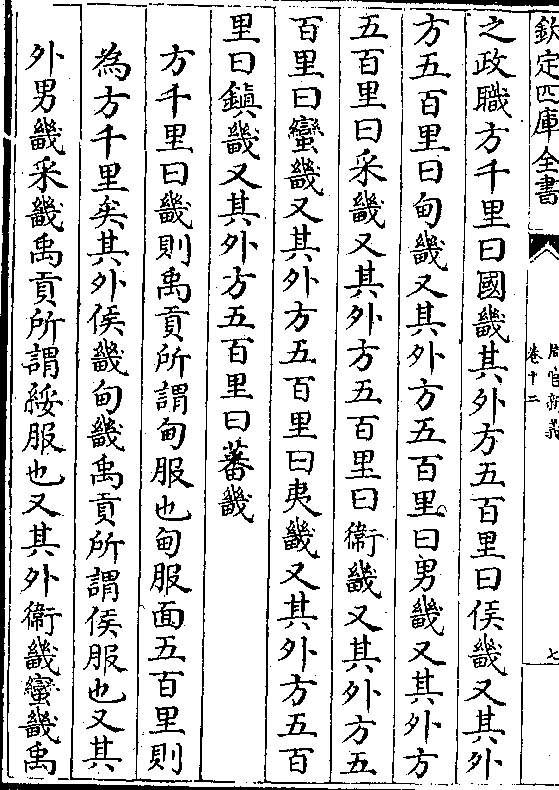 欽定四庫全書
周官新義
卷十二
七
之政職方千里曰國畿其外方五百里曰侯畿又其外
方五百里曰甸畿又其外方五百里曰男畿又其外方
五百里曰采畿又其外方五百里曰衛畿又其外方五
百里曰蠻畿又其外方五百里曰夷畿又其外方五百
里曰鎮畿又其外方五百里曰蕃畿
方千里曰畿則禹貢所謂甸服也甸服面五百里則
為方千里矣其外侯畿甸畿禹貢所謂侯服也又其
外男畿采畿禹貢所謂綏服也又其外衛畿蠻畿禹